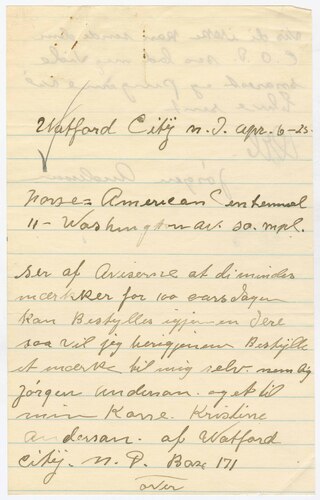 Watford City N. D. Apr. 6-25.
Norse-American Centennial
11- Washington av. So. Mpl.
ser af Aviserne at di mindes
mærkker for 100 aarsdagen
kan Bestylles igjenem Dere
saa vil jeg herigjenem Bestylle
et mærke til mig selv.
Jørgen Anderson. og et til
min Kone. Kristine
Anderson. af Watford
City. N. D. Box 171
over